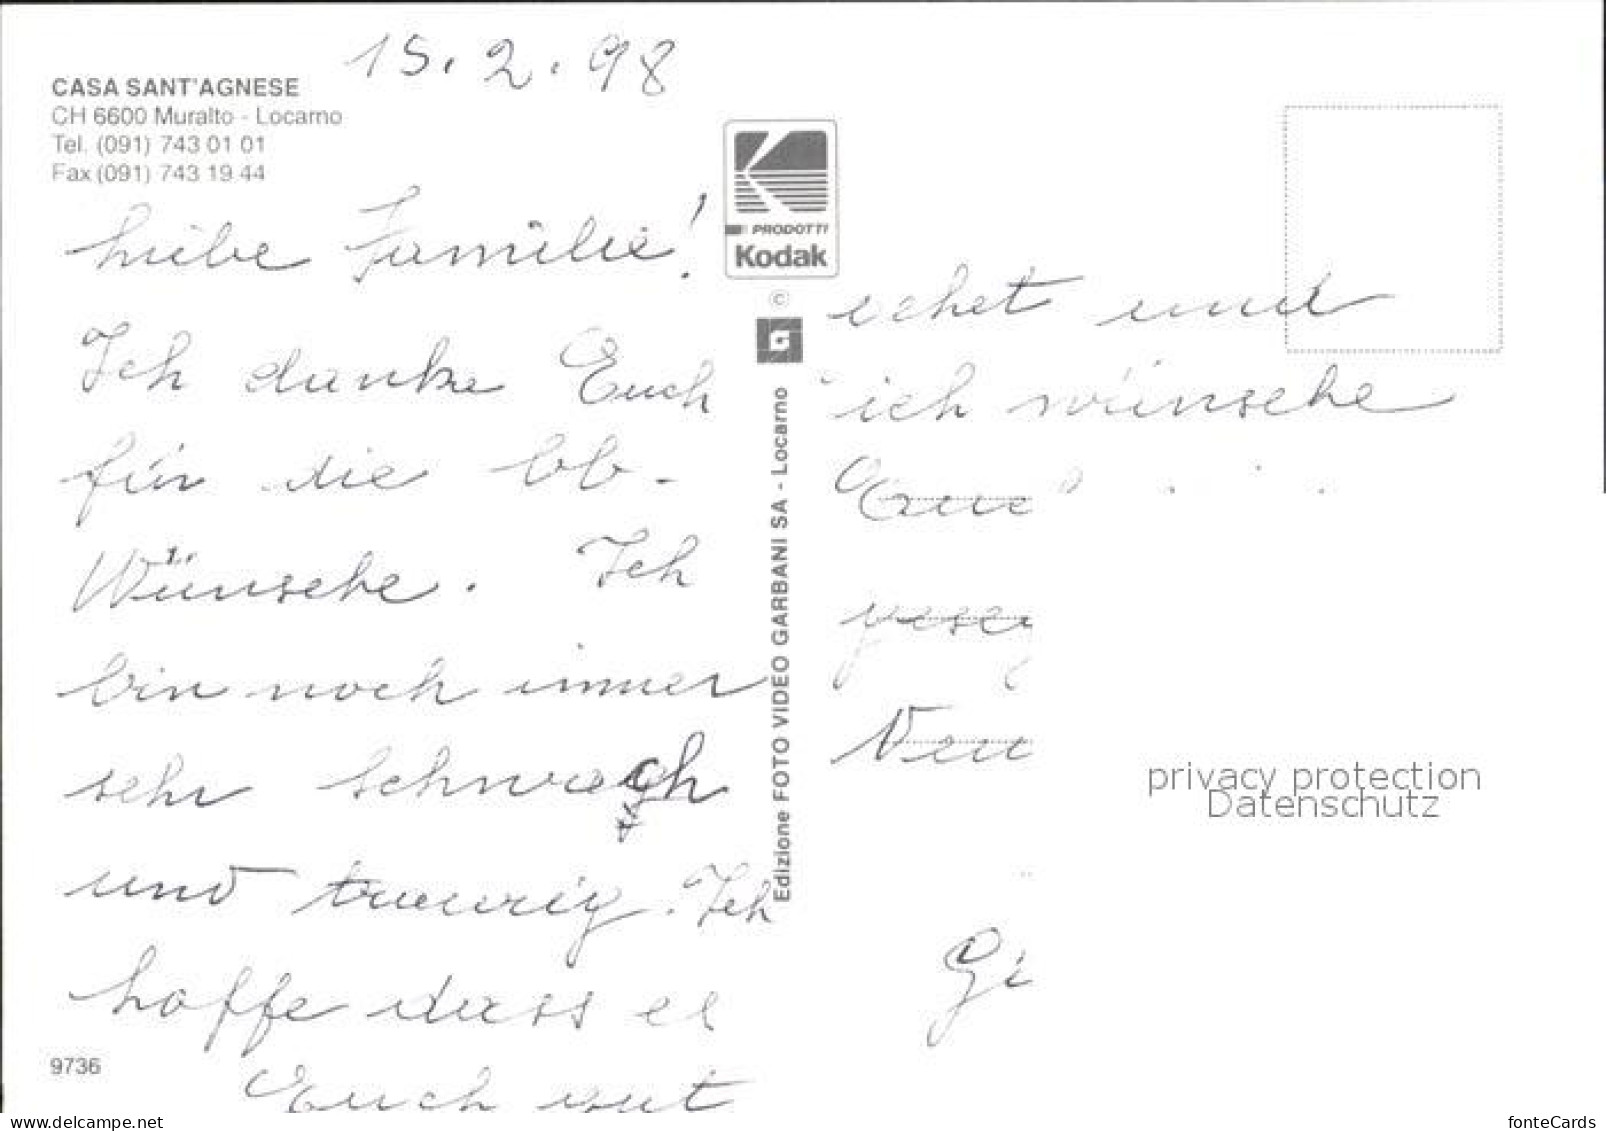 15.2.98
CASA SANT'AGNESE
CH 6600 Muralto - Locarno
Tel. (091) 743 01 01
Fax (091) 743 19 44
Liebe Familie!
Ich danke Euch
für die lb.
Wünsche. Ich
bin noch immer
sehr schwach
und traurig. Ich
hoffe dass es
Euch gut
9736
PRODOTTI
Kodak
©
G
Edizione FOTO VIDEO GARBANI SA - Locarno
gehet und
ich wünsche
Euch
privacy protection
Datenschutz
www.delcampe.net
fonteCards